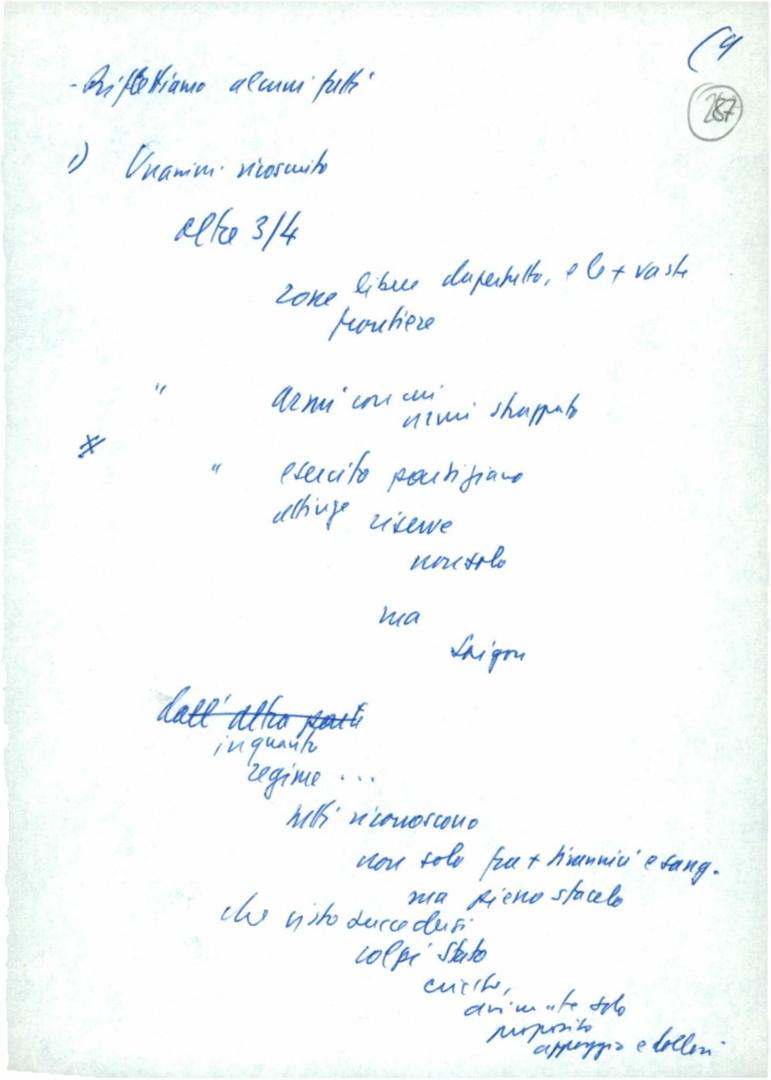 (4
287
- Riflettiamo alcuni fatti
1) Unanim. riconosciuto
oltre 3/4
zone libere dapertutto, e le + vaste
frontiere
" armi con cui
armi strappato
" esercito partigiano
attinge riserve
non solo
ma
Saigon
dall'altra parte
in quanto
regime ...
tutti riconoscono
non solo fra + tirannici e sang.
ma pieno sfacelo
che visto succedersi
colpi stato
animate solo
proposito
appoggio e dollari